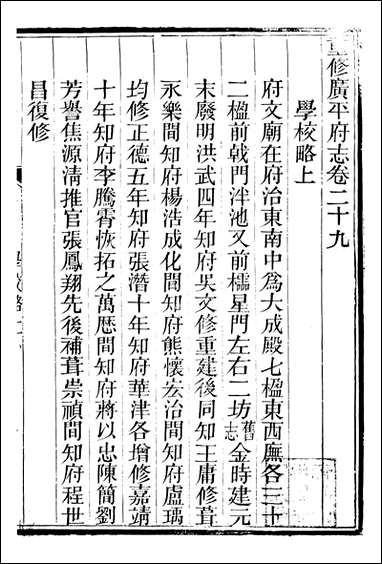 重修廣平府志卷二十九
學校略上
府文廟在府治東南中為大成殿七楹東西廡各三十
二楹前戟門泮池又前櫺星門左右二坊舊志金時建元
末廢明洪武四年知府吳文修重建後同知王庸修葺
永樂間知府楊浩成化間知府熊懷宏治間知府盧瑀
均修正德五年知府張潛十年知府華津各增修嘉靖
十年知府李騰霄恢拓之萬歷間知府將以忠陳簡劉
芳譽焦源淸推官張鳳翔先後補葺崇禎間知府程世
昌復修